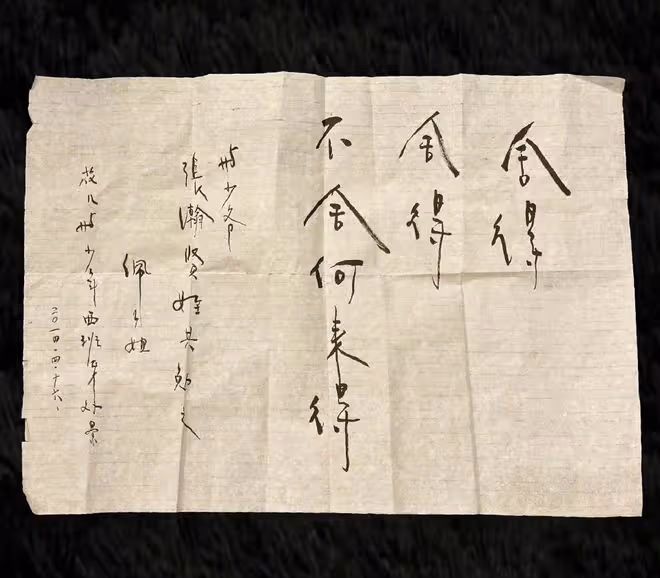 舍得
舍得
不舍何来得
少
張瀚賢姪共勉之
佩姐
少年西班牙外景
二〇一四・四・十六・